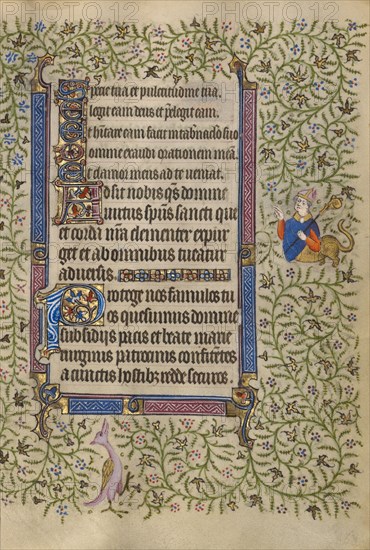 Specie tua et pulcritudine tua.
Elegit eam deus et p̄elegit eam.
Et h̄itare eam facit in tab̄naclo suo
Domine exaudi orationem meā.
Et clamor meus ad te veniat.
Assit nobis qs̄ domine
virtus sp̄us sancti que
et corda nr̄a clementer expur
get et ab omnibus tueatur
aduersis.
Protege nos famulos tu
os quesumus domine
subsidijs pacis et beate marie
virginis patrocinijs confitētes
a cunctis hostibz redde securos.